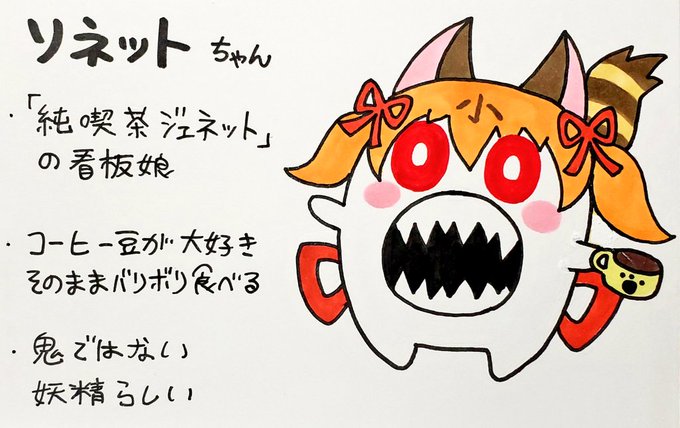 ソネットちゃん
・「純喫茶ジェネット」
の看板娘
・コーヒー豆が大好き
そのままバリボリ食べる
・鬼ではない
妖精らしい
小